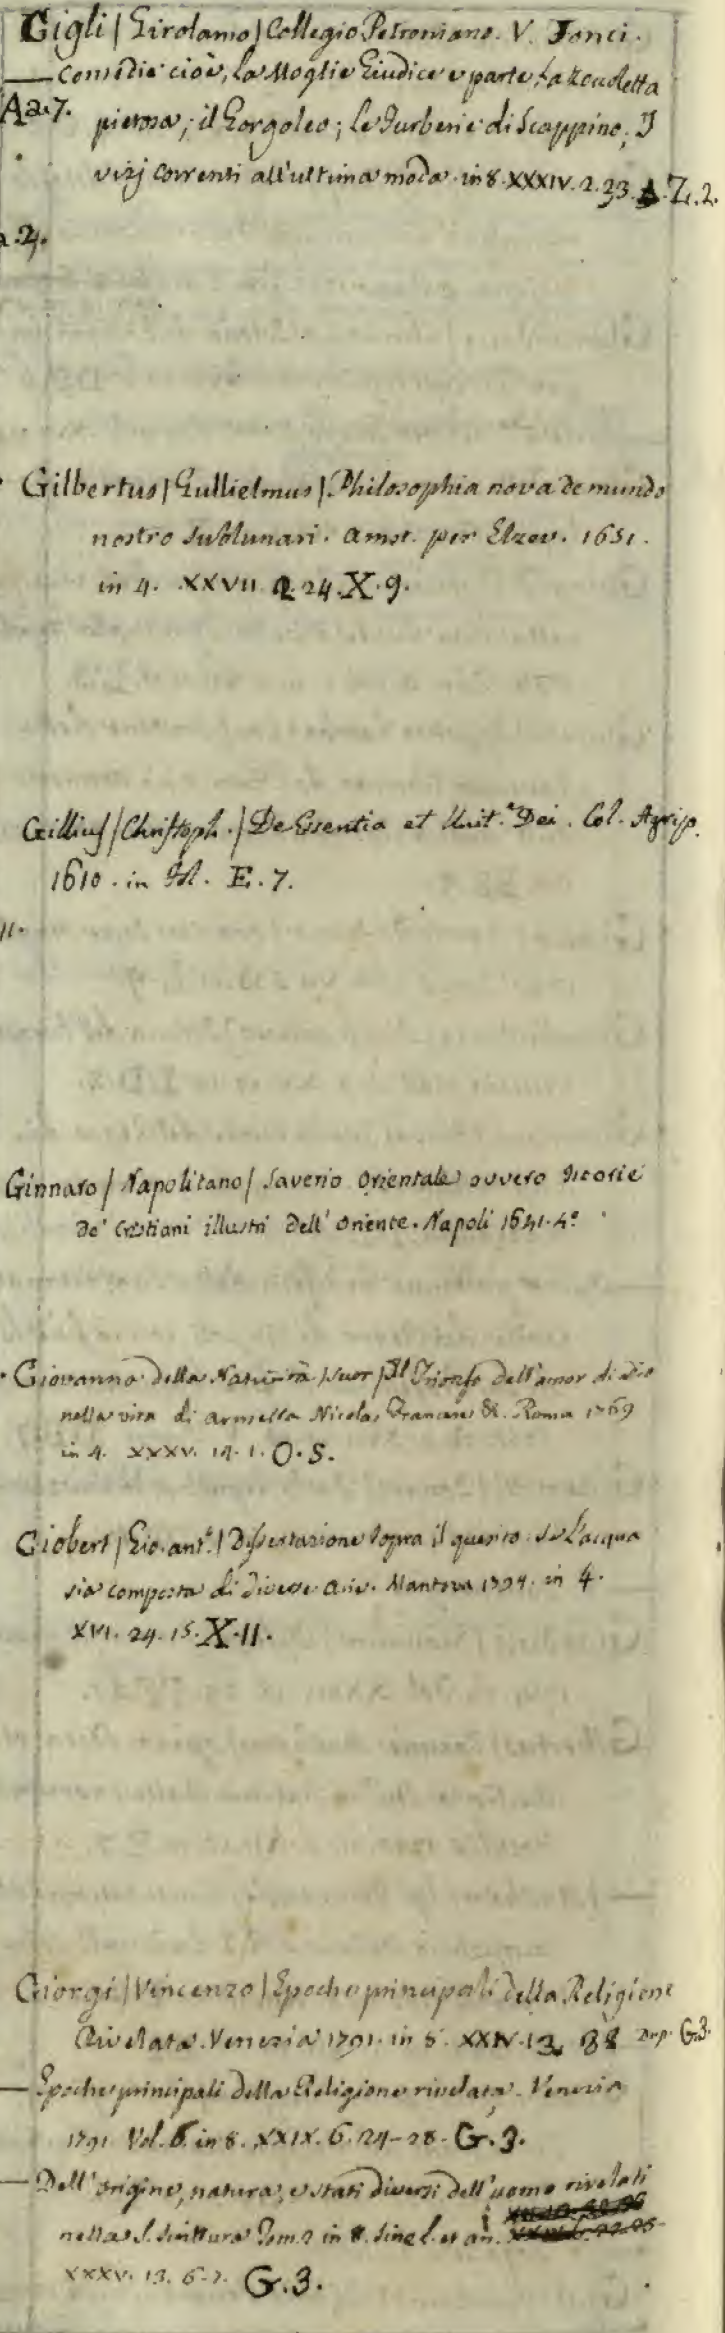 Gigli / Girolamo / Collegio Petroniano. V. Fonci.
— Comedie cioè, La Moglie Giudice e parte, La Zenoletta
Aa.7. pietosa, il Gorgoleo; Le Furberie di Scappino, I
vizj correnti all'ultima moda. in 8. XXXIV. 2. 33. Z. 2.
a.2.
Gilbertus / Gullielmus / Philosophia nova de mundo
nostro sublunari. Amst. per Elzev. 1651.
in 4. XXVII. 2. 24. X. 9.
Gillius / Christoph. / De Essentia et Unit.e Dei. Col. Agrip.
1610. in fol. E. 7.
11.
Ginnaro / Napolitano / Saverio Orientale ovvero Istorie
de' Cristiani illustri dell' Oriente. Napoli 1641. 4º
Giovanna della Natività / Suor / Il Trionfo dell'amor di Dio
nella vita di Armella Nicolas Roma 1769
in 4. XXXV. 14. 1. O. S.
Giobert / Gio. ant.º / Dissertazione sopra il quesito se l'acqua
sia composta di diverse arie. Mantova 1794. in 4.
XVI. 24. 15. X. 11.
Giorgi / Vincenzo / Epoche principali della Religione
Rivelata. Venezia 1791. in 8. XXIV. 13, 38 Dup. G.3.
— Epoche principali della Religione rivelata. Venezia
1791. Vol. 6. in 8. XXIX. 6. 24-28. G. 3.
— Dell'origine, natura, e stati diversi dell'uomo rivelati
nella S. Scrittura Tom. 2 in 8. sine l. et an.
XXXV. 13. 6-7. G. 3.